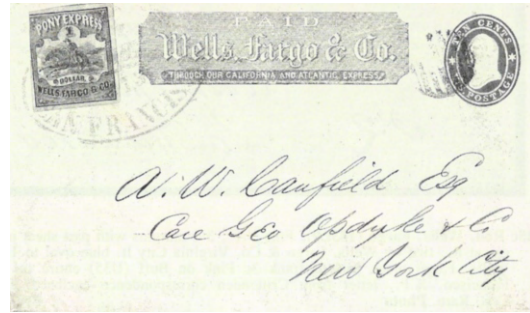 PONY EXPRESS
DOLLAR
WELLS, FARGO & CO.
PAID
Wells, Fargo & Co.
THROUGH OUR CALIFORNIA AND ATLANTIC EXPRESS
TEN CENTS
U.S. POSTAGE
SAN FRANCIS
A. W. Canfield Esq
Care Geo Opdyke & Co
New York City